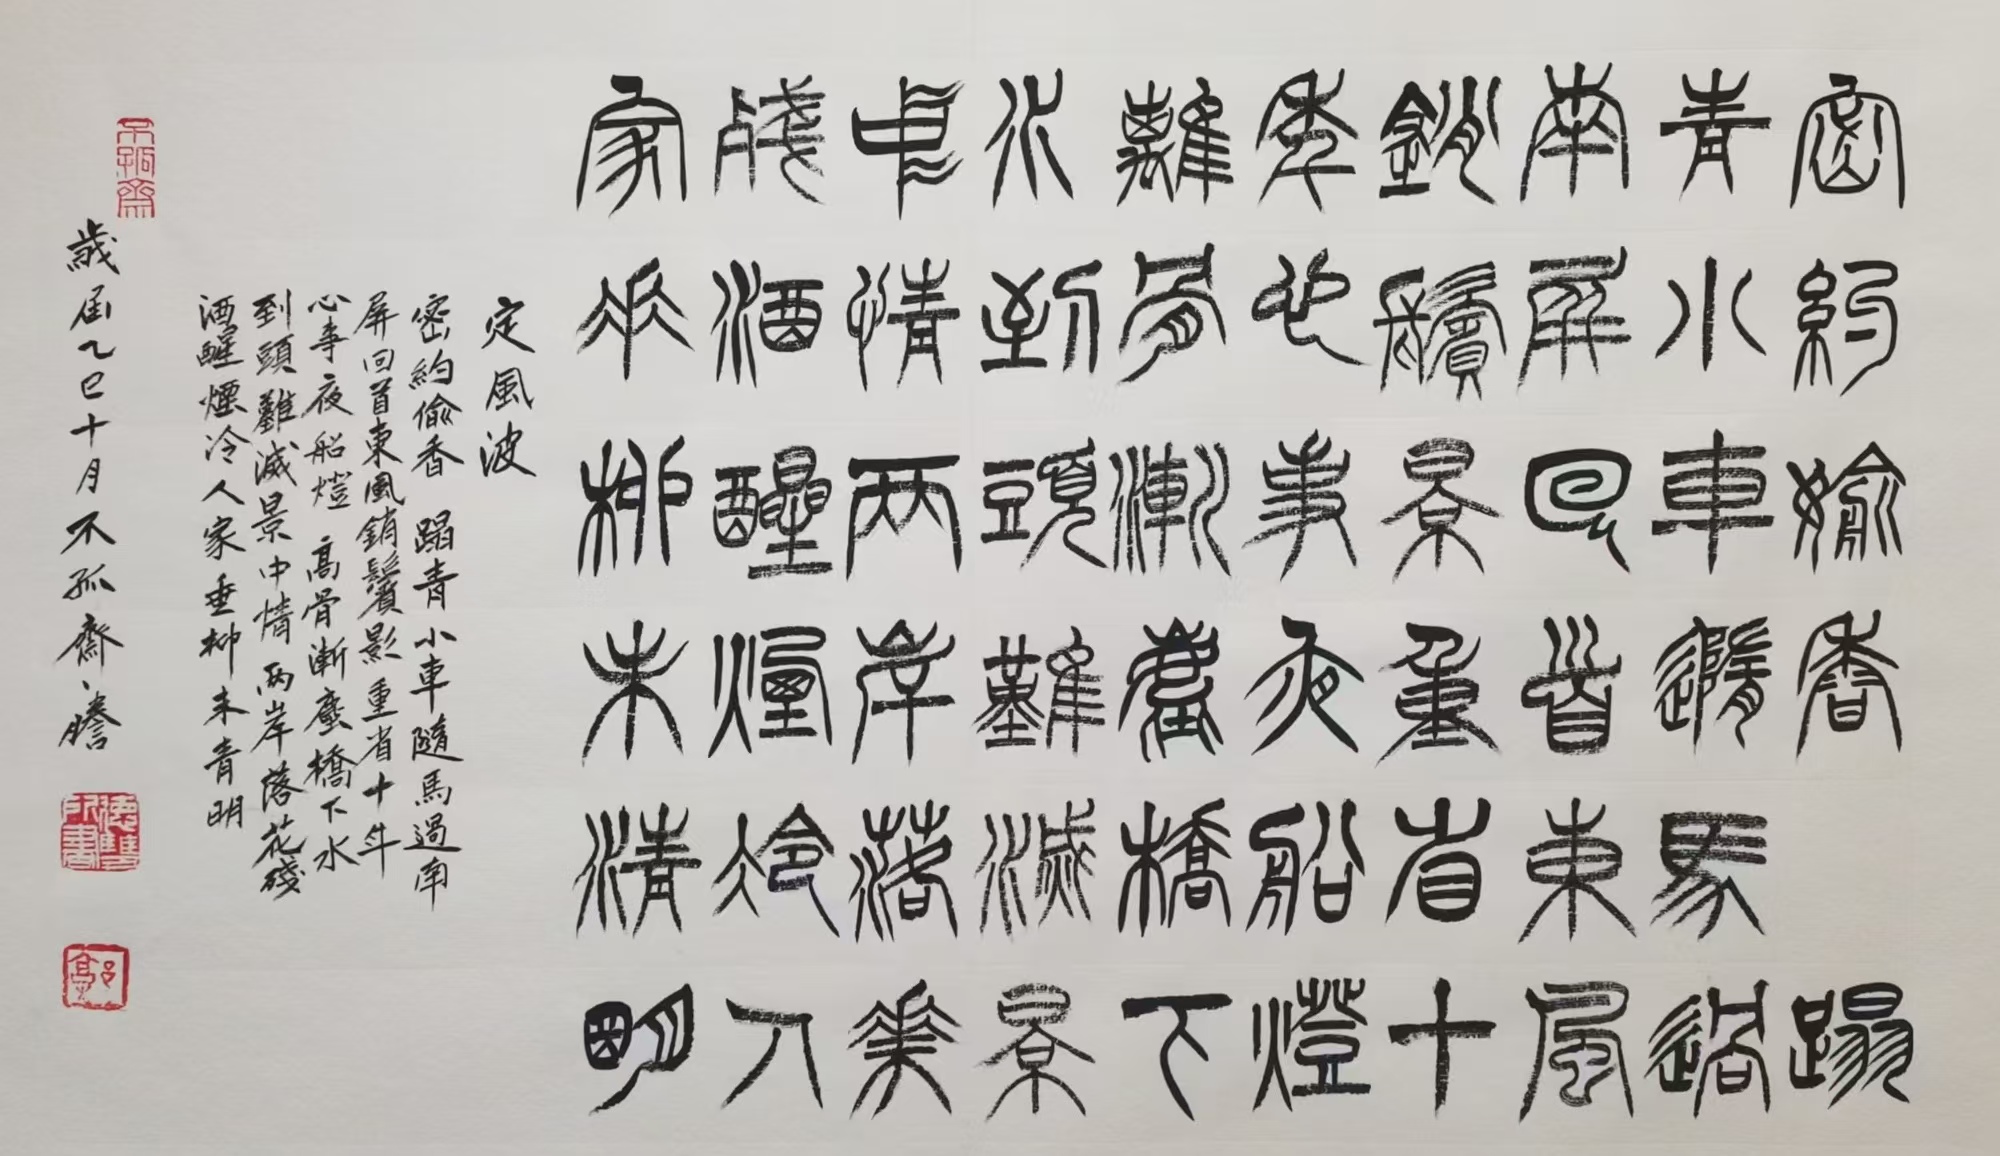 密約婾香 蹋
青小車隨馬過
南屏回首東風
銷鬢景重省十
年心事夜船燈
離骨漸塵橋下
水到頭難滅景
中情兩岸落華
殘酒醒煙冷人
家垂桺未清明
定風波
密約偷香 蹋青小車隨馬過南
屏回首東風銷鬢影重省十年
心事夜船燈 离骨漸塵橋下水
到頭難滅景中情兩岸落花殘
酒醒煙冷人家垂柳未青明
不孤齋
歲届乙巳十月不孤齋謄
郭